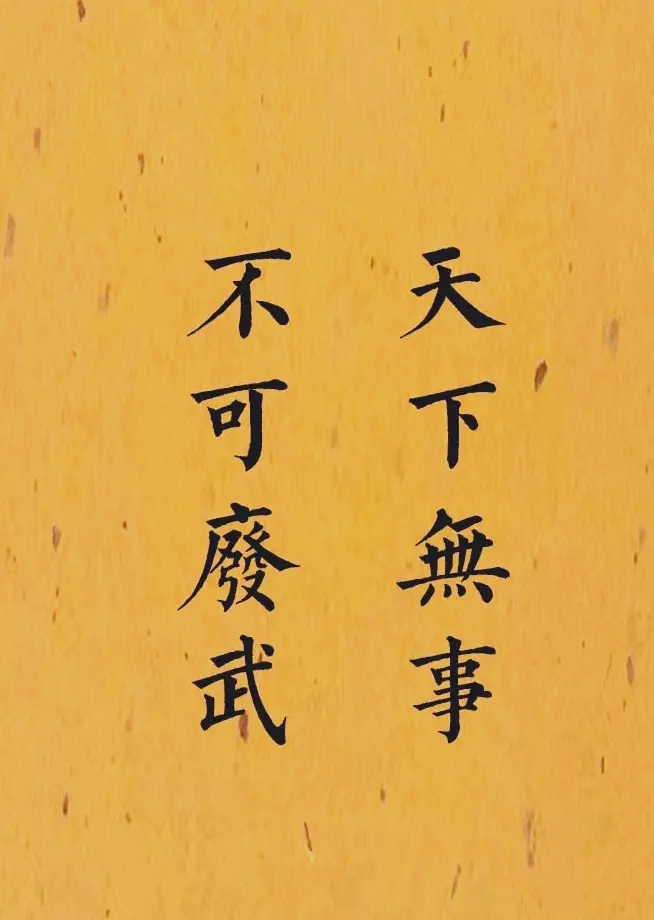 天下無事
不可廢武